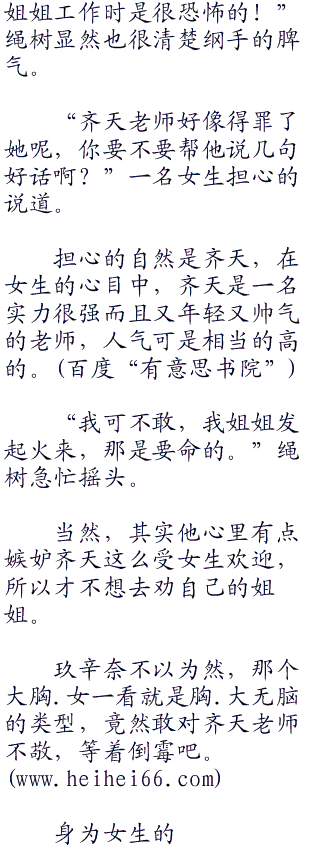 姐姐工作时是很恐怖的！”
绳树显然也很清楚纲手的脾
气。
“齐天老师好像得罪了
她呢，你要不要帮他说几句
好话啊？”一名女生担心的
说道。
担心的自然是齐天，在
女生的心目中，齐天是一名
实力很强而且又年轻又帅气
的老师，人气可是相当的高
的。(百度“有意思书院”)
“我可不敢，我姐姐发
起火来，那是要命的。”绳
树急忙摇头。
当然，其实他心里有点
嫉妒齐天这么受女生欢迎，
所以才不想去劝自己的姐
姐。
玖辛奈不以为然，那个
大胸.女一看就是胸.大无脑
的类型，竟然敢对齐天老师
不敬，等着倒霉吧。
(www.heihei66.com)
身为女生的